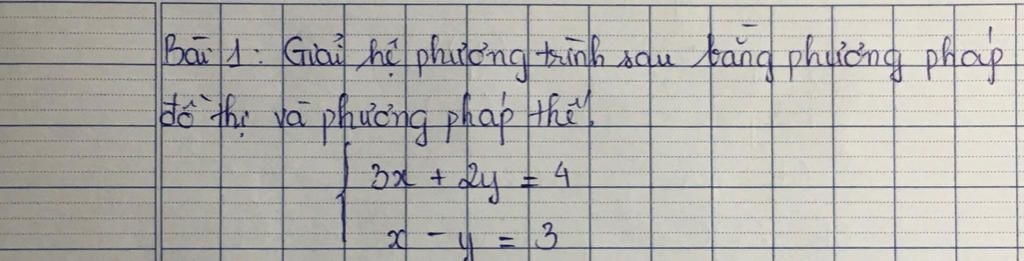 Bài 1: Giải hệ phương trình sau bằng phương pháp
đồ thị và phương pháp thế.
3x + 2y = 4
x - y = 3